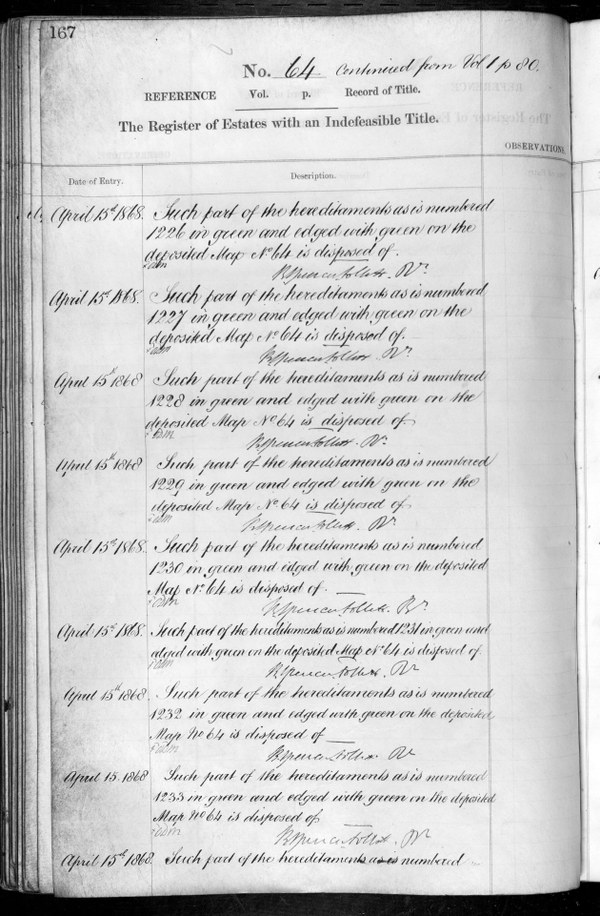 167
No. 64 Continued from Vol 1 p 80.
REFERENCE Vol. p. Record of Title.
The Register of Estates with an Indefeasible Title.
OBSERVATIONS
Date of Entry. Description.
April 15th 1868. Such part of the hereditaments as is numbered
1226 in green and edged with green on the
deposited Map No 64 is disposed of.
Rr
April 15th 1868. Such part of the hereditaments as is numbered
1227 in green and edged with green on the
deposited Map No 64 is disposed of.
Rr
April 15th 1868 Such part of the hereditaments as is numbered
1228 in green and edged with green on the
deposited Map No 64 is disposed of
Rr
April 15th 1868 Such part of the hereditaments as is numbered
1229 in green and edged with green on the
deposited Map No 64 is disposed of
Rr
April 15th 1868. Such part of the hereditaments as is numbered
1230 in green and edged with green on the deposited
Map No 64 is disposed of.
Rr
April 15th 1868. Such part of the hereditaments as is numbered 1231 in green and
edged with green on the deposited Map No 64 is disposed of.
Rr
April 15th 1868. Such part of the hereditaments as is numbered
1232 in green and edged with green on the deposited
Map No 64 is disposed of
Rr
April 15. 1868 Such part of the hereditaments as is numbered
1233 in green and edged with green on the deposited
Map No 64 is disposed of
Rr
April 15th 1868. Such part of the hereditaments as is numbered